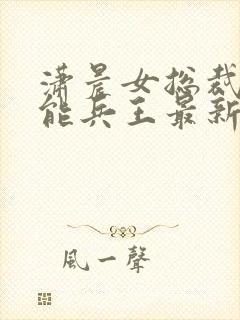 潇晨女总裁
能兵王最新
風一聲